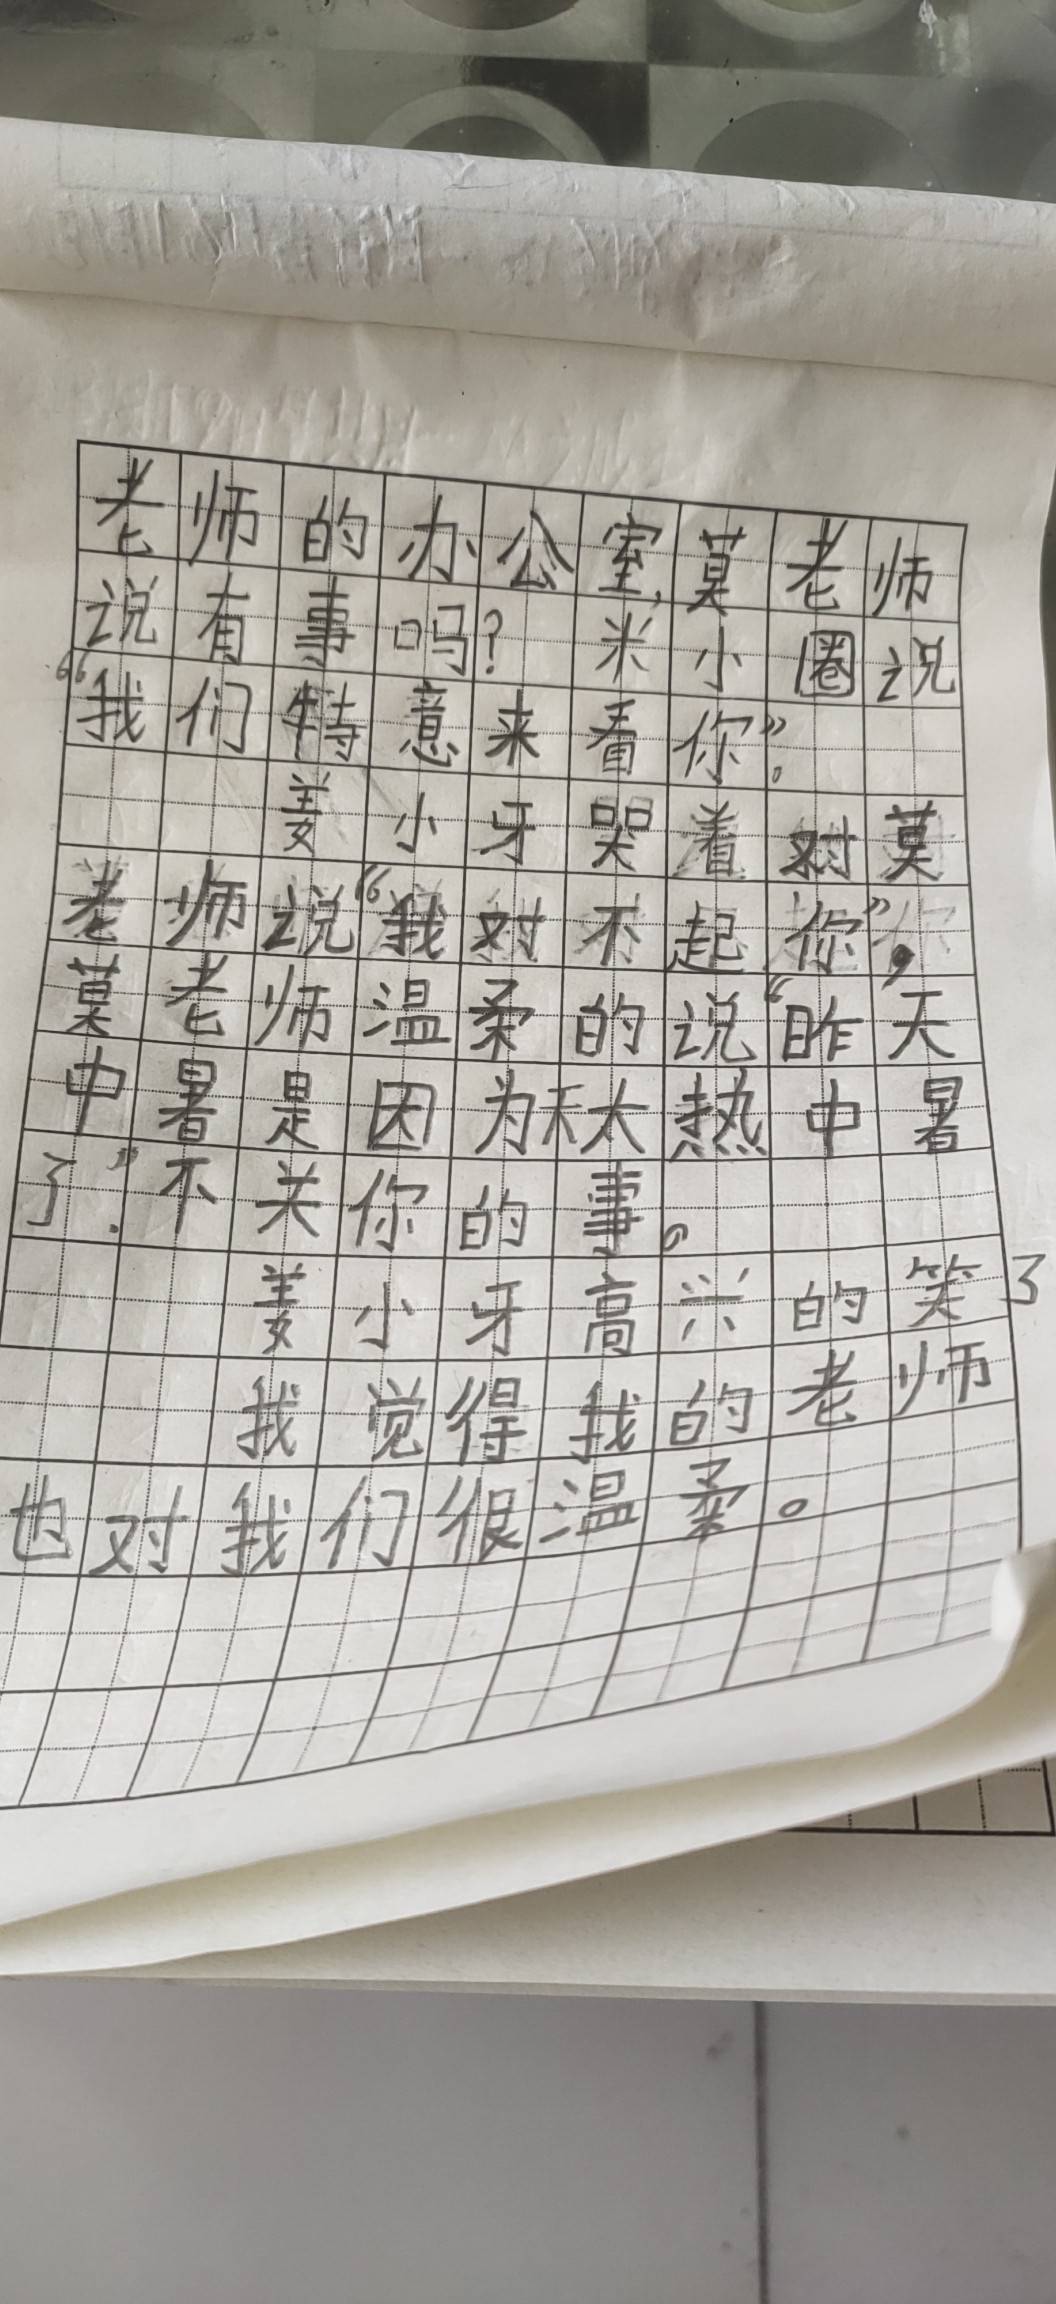 老师的办公室,莫老师
说有事吗?米小圈说
“我们特意来看你”。
姜小牙哭着对莫
老师说“我对不起你”,
莫老师温柔的说“昨天
中暑是因为天太热中暑
了.”不关你的事。
姜小牙高兴的笑了
我觉得我的老师
也对我们很温柔。